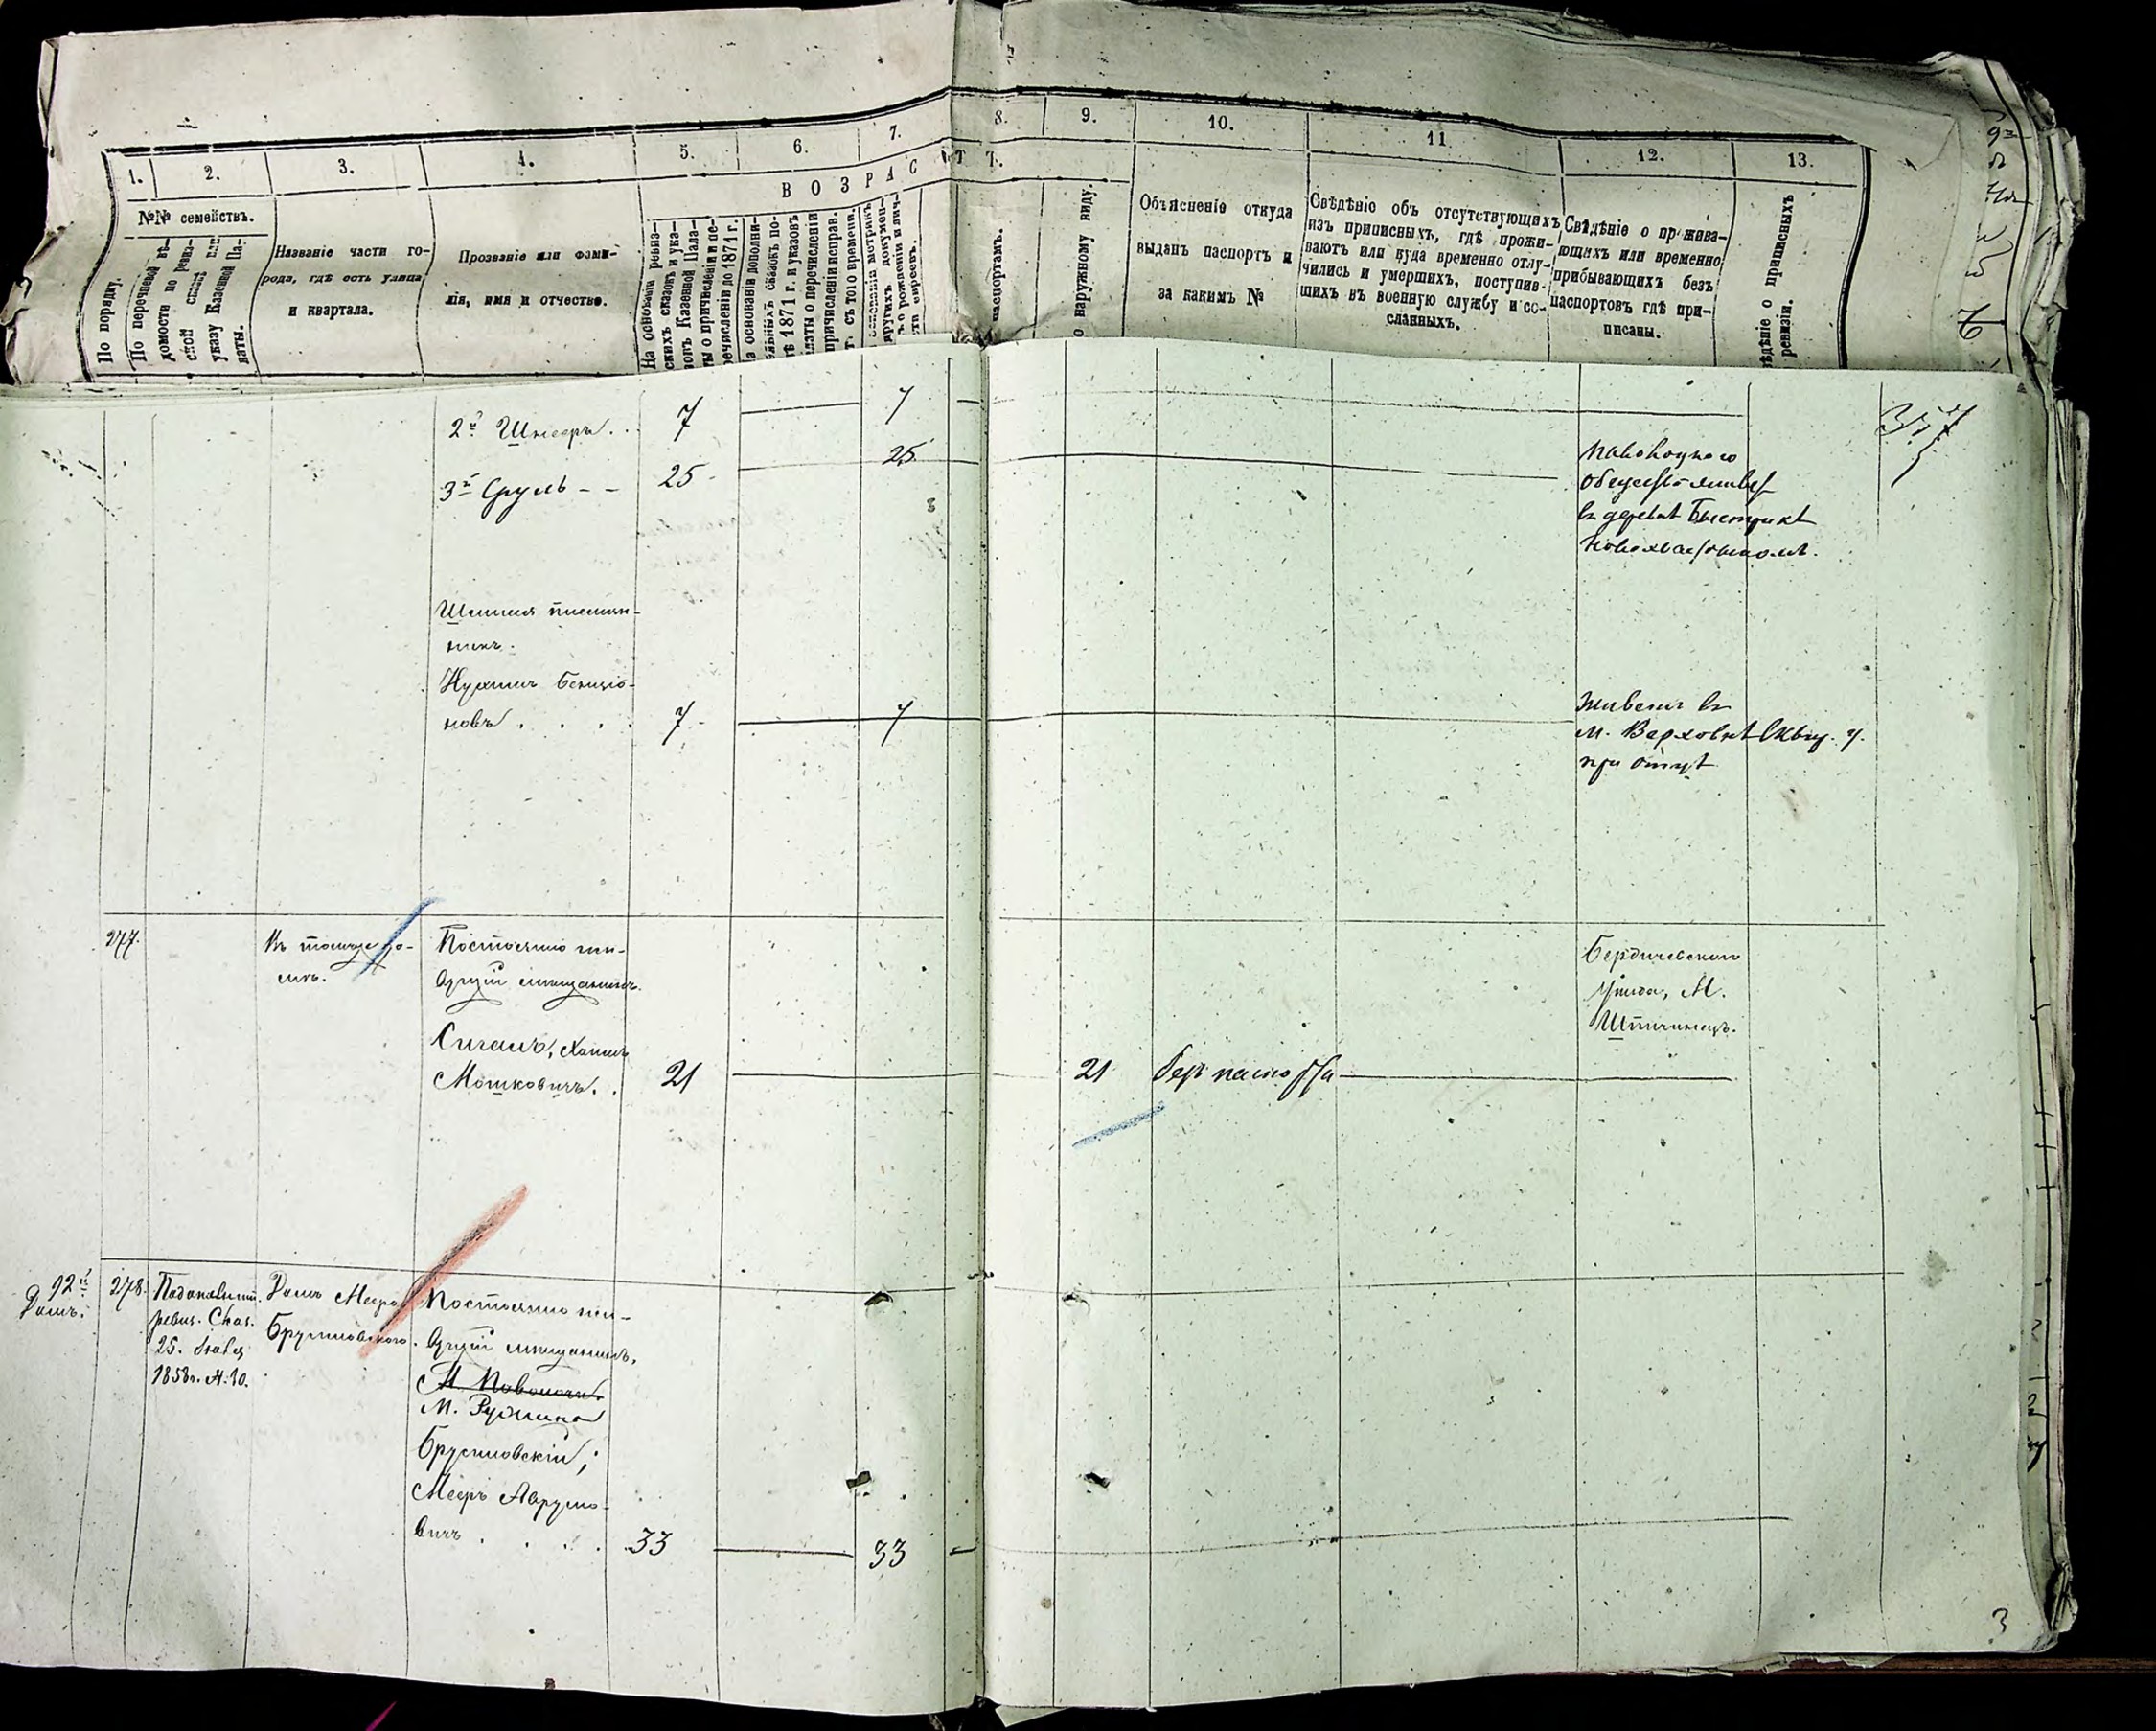 1.
2.
3.
4.
5.
6.
7.
8.
9.
10.
11
12.
13.
№№ семействъ.
По порядку.
По перечневой вѣ-
домости по ревиз-
ской сказкѣ или
указу Казенной Па-
латы.
Названіе части го-
рода, гдѣ есть улица
и квартала.
Прозваніе или фами-
лія, имя и отчество.
ВОЗРАСТЪ.
На основаніи ревиз-
скихъ сказокъ и ука-
зовъ Казенной Пала-
ты о причисленіи и пе-
речисленіи до 1871 г.
а основаніи дополни-
ельныхъ сказокъ по-
тѣ 1871 г. и указовъ
латы о перечисленіи
причисленіи исправ.
г. съ того времени.
основаніи метрикъ
другихъ докумен-
ъ о рожденіи и лич-
ти евреевъ.
паспортамъ.
о наружному виду.
Объясненіе откуда
выданъ паспортъ и
за какимъ №
Свѣдѣніе объ отсутствующихъ
изъ приписныхъ, гдѣ прожи-
ваютъ или куда временно отлу-
чились и умершихъ, поступив-
шихъ въ военную службу и со-
сланныхъ.
Свѣдѣніе о прожива-
ющихъ или временно
прибывающихъ безъ
паспортовъ гдѣ при-
писаны.
ѣдѣніе о приписныхъ
ревизіи.
2й Шнееръ . . 7 7
3й Сруль - - 25 25
Паволоцкого
въ деревнѣ Быстрикѣ
Шмилія племян-
никъ.
Нухимъ Бенціо-
новъ . . . . 7 7
Живетъ въ
м. Верховнѣ Сквир. у.
при отцѣ
277. Въ томже до-
мѣ.
Постоянно жи-
вущій мѣщанинъ.
Сигалъ, Хаимъ
Мошковичъ. . 21
21 безъ паспорта
Бердичевскаго
Уѣзда, М.
92й
Домъ.
278.
ревиз. Сказ.
25.
1858г. №.10.
Домъ Меера
Брусиловского.
Постоянно жи-
вущій мѣщанинъ,
М. Паволочи.
М. Ружина
Брусиловскій,
Мееръ Аврумо-
вичъ . . . . 33 33
3